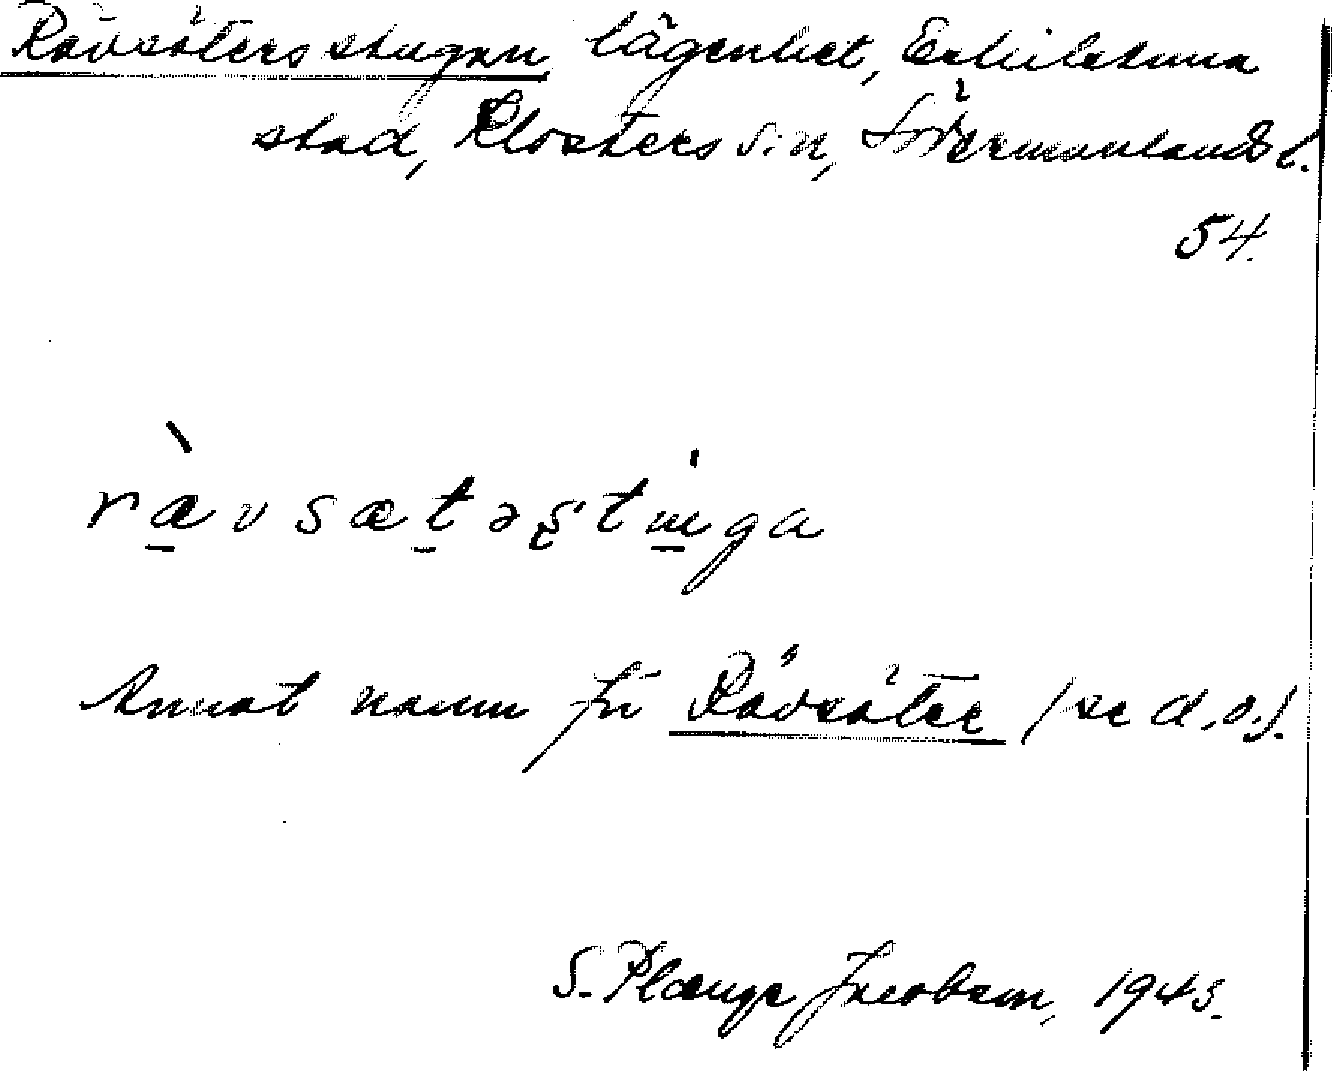 Rävsätersstugan lägenhet, Eskilstuna
stad, Klosters s:n, Södermanlands l.
54.
rævsætəʂtɯga
Annat namn för Rävsäter (se d.o.).
S. Plænge Jacobson, 1943.